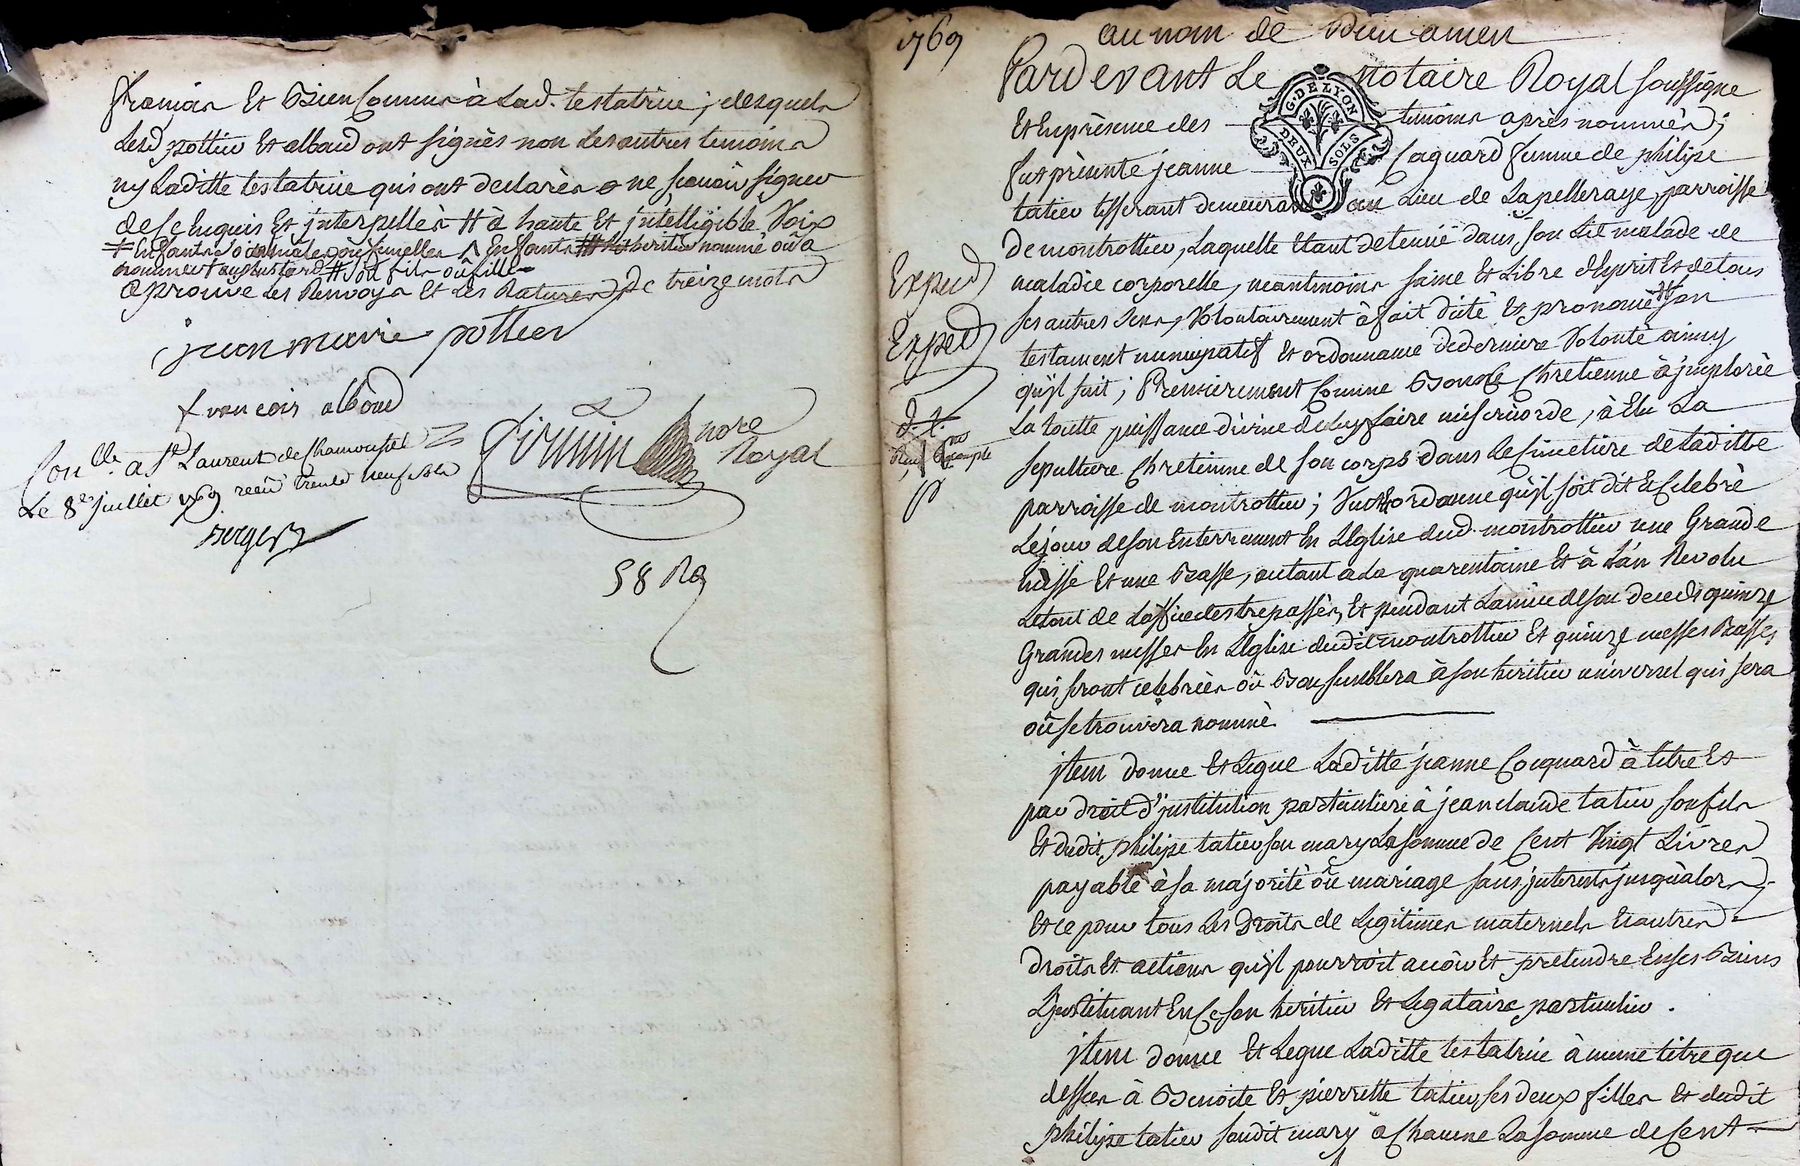 françois Et Bien Connus à Lad. testatrice, desquels
Lesd pottier Et alboud ont signès non Les autres temoins
ny Laditte testatrice qui ont declarès ne sçavoir signer
de ce Enquis Et interpellès # à haute Et jntelligible Voix
+ Enfants soient males ou femelles ^ Enfants # heritier nommé où a
nommer # soit fils où fille
aprouvè Les Renvoys Et Les Ratures de treize mots
jean marie pottier
francois alboud
firmin nore Royal
Con.lle a St Laurent de Chamousset
Le 8e juillet 1769 recu trente neuf sols
Berger
58 Rq
1769
au nom de Dieu amen
Pardevant Le notaire Royal soussigne
Et En prèsence des temoins après nommès;
fut prèsente jeanne Coquard femme de philipe
tatieu tisserant demeurant au Lieu de Lapelleraye, parroisse
G. DE LYON
DEUX SOLS
De montrottier, Laquelle Etant detenuë dans son Lit malade de
maladie corporelle, neantmoins saine Et Libre d'Esprit Et de tous
ses autres sens, Volontairement à fait dictè Et prononcè son
testament nuncupatif Et ordonnance de derniere Volontè ainsy
qu'jl suit; Premierement Comme Bonne Chretienne à jmplorèe
La toutte puissance divine de Luy faire misericorde, à Elu La
sepulture Chretienne de son corps dans Le Cimetiere de Laditte
parroisse de montrottier; Veut Et ordonne qu'jl soit dit Et Celebrè
Le jour de son Enterrement En L'Eglise dud. montrottier une Grande
messe Et une Basse, autant a La quarentaine Et à L'an Revolu
Le tout de L'office des trepassès, Et pendant L'annèe de son decedz quinze
Grandes messes En L'Eglise dudit montrottier Et quinze messes Basses
qui seront celebrèes où Bon semblera à son heritier universel qui sera
où se trouvera nommè.
Exped
Exped
jtem donne Et Legue Laditte jeanne Cocquard à titre Et
par droit d'jnstitution particuliere à jean claude tatieu son fils
Et dudit philipe tatieu son mary La somme de Cent Vingt Livres
payable à sa majoritè où mariage sans jnterests jusqu'alors,
Et ce pour tous Les Droits de Legitimes maternels Et autres
droits Et actions qu'jl pourroit avoir Et pretendre En ses Biens
L'jnstituant En Ce son heritier Et Legataire particulier.
jtem donne Et Legue Laditte testatrice à meme titre que
dessus à Benoite Et pierrette tatieu ses deux filles Et dudit
philipe tatieu sondit mary à Chacune La somme de Cent